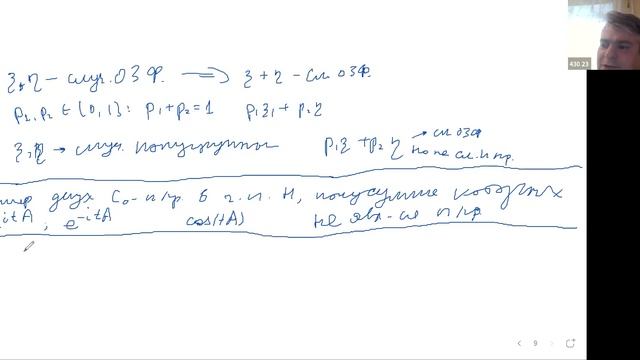 ξ,η – случ. ОЗФ. ⟹ ξ + η – сл. ОЗФ.
p₁, p₂ ∈ (0,1): p₁+p₂=1 p₁ξ + p₂η
ξ,η → случ. полугруппы p₁ξ + p₂η → сл. ОЗФ
но не сл. п/гр.
мер двух C₀-п/гр. в г.п. H, полусумма которых
itA, e^{-itA} cos(tA) не явл-ся п/гр.
430.23
9